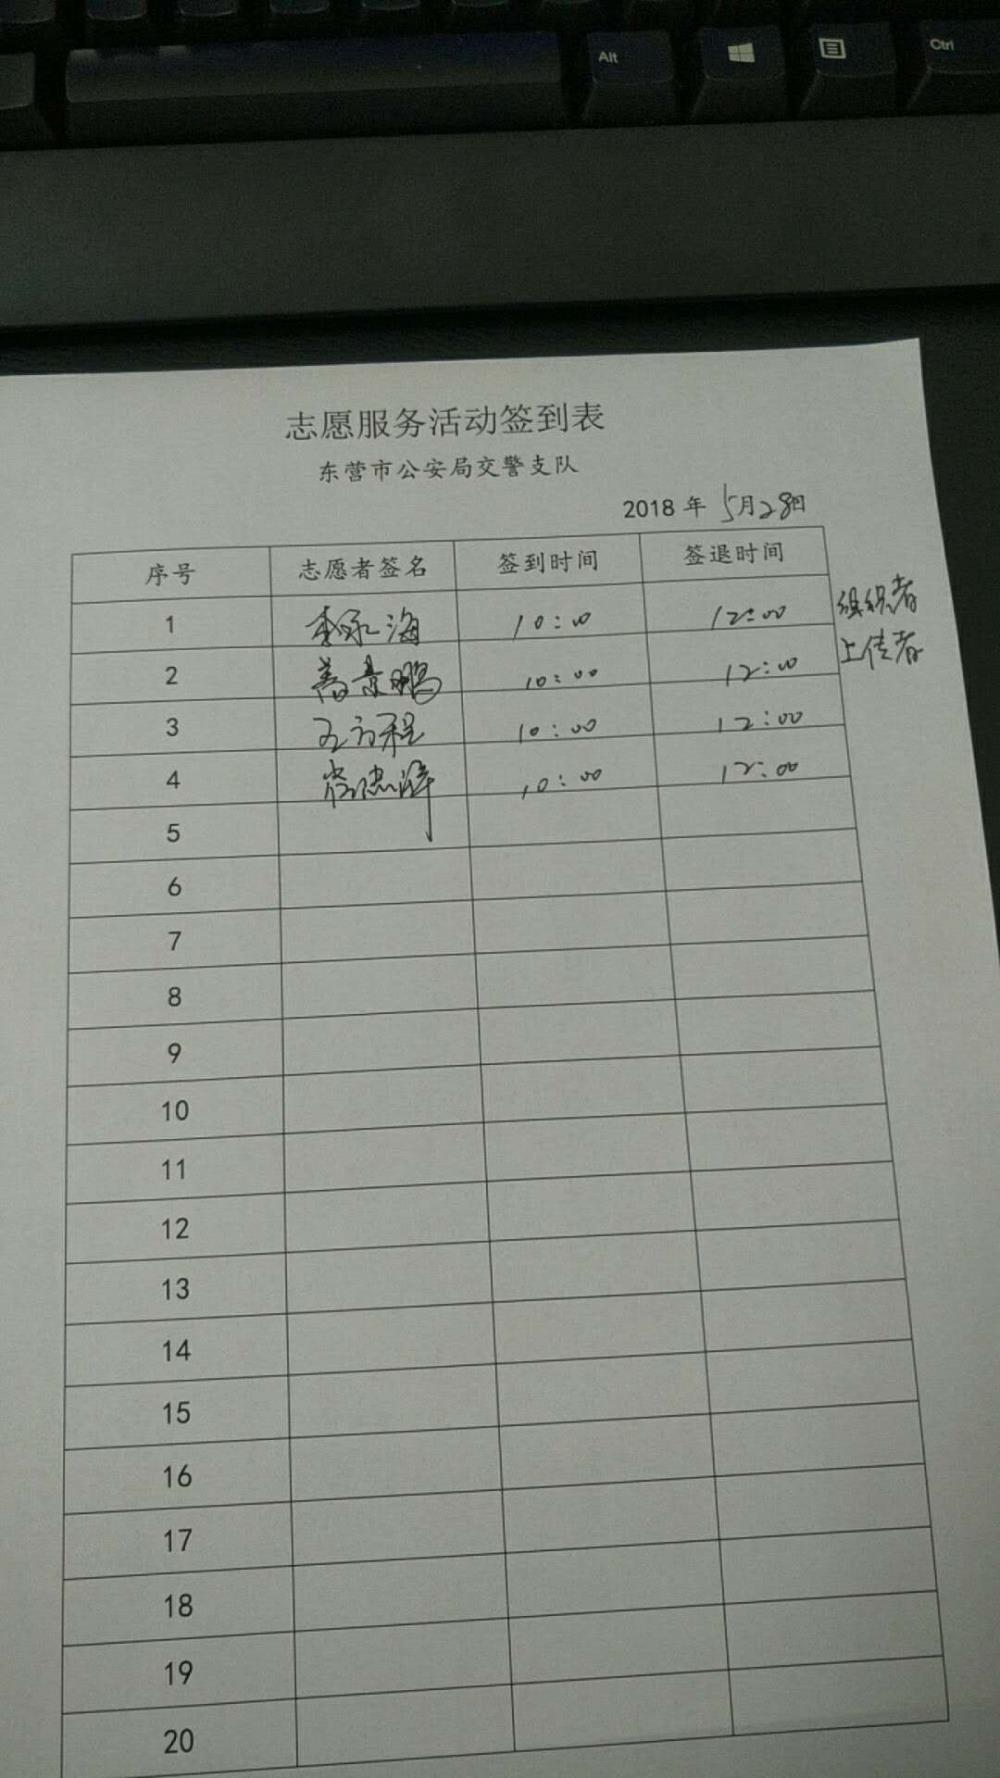 Alt
Ctrl
志愿服务活动签到表
东营市公安局交警支队
2018 年 5月28日
序号 志愿者签名 签到时间 签退时间
1 李永海 10:00 12:00 组织者
2 景鹏 10:00 12:00 上传者
3 王方程 10:00 12:00
4 10:00 12:00
5
6
7
8
9
10
11
12
13
14
15
16
17
18
19
20